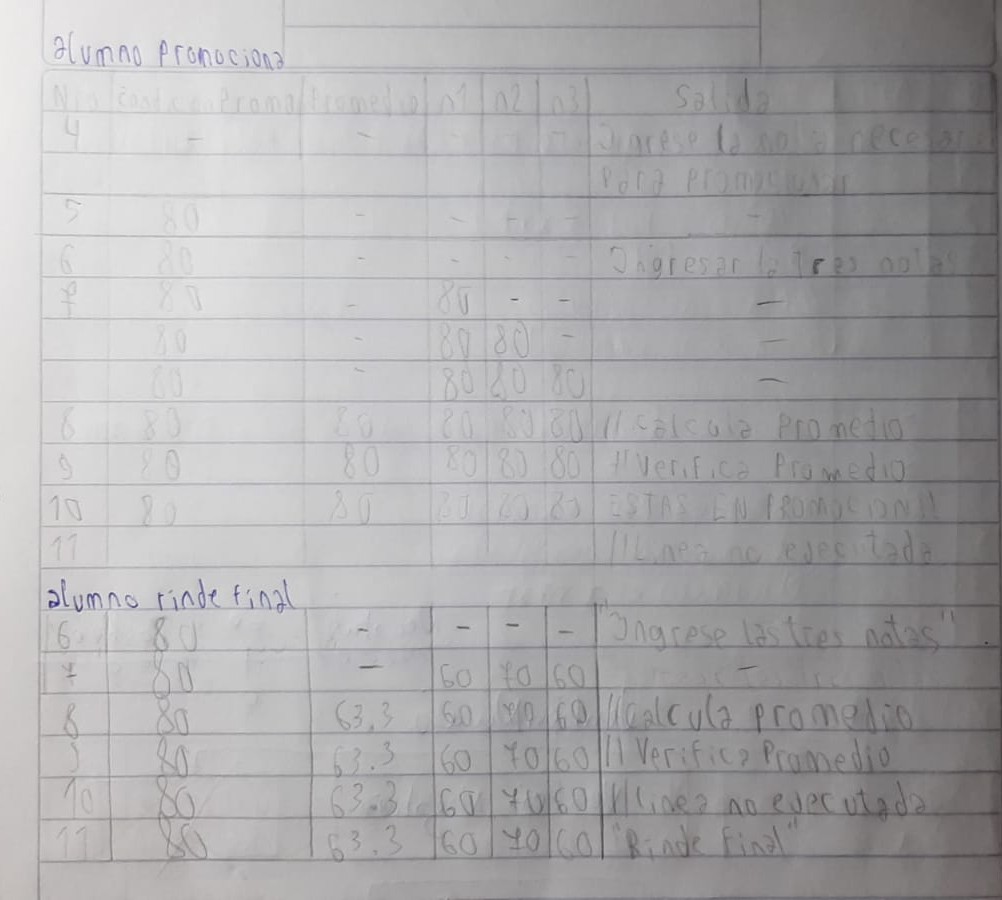 alumno promociona
Promedio n1 n2 n3 Salida
4 - - Ingrese la necesaria
para promocionar
5 80 - - - - -
6 80 - - - - Ingresar la tres notas
7 80 - 80 - - -
80 - 80 80 - -
80 - 80 80 80 -
8 80 80 80 80 80 //calcula promedio
9 80 80 80 80 80 //Verifica Promedio
10 80 80 80 80 80 ESTAS EN PROMOCION!!
11 //Linea no ejecutada
alumno rinde final
6 80 - - - - "Ingrese las tres notas"
7 80 - 60 70 60 -
8 80 63.3 60 70 60 //calcula promedio
9 80 63.3 60 70 60 //Verifica Promedio
10 80 63.3 60 70 60 //Linea no ejecutada
11 80 63.3 60 70 60 "Rinde Final"